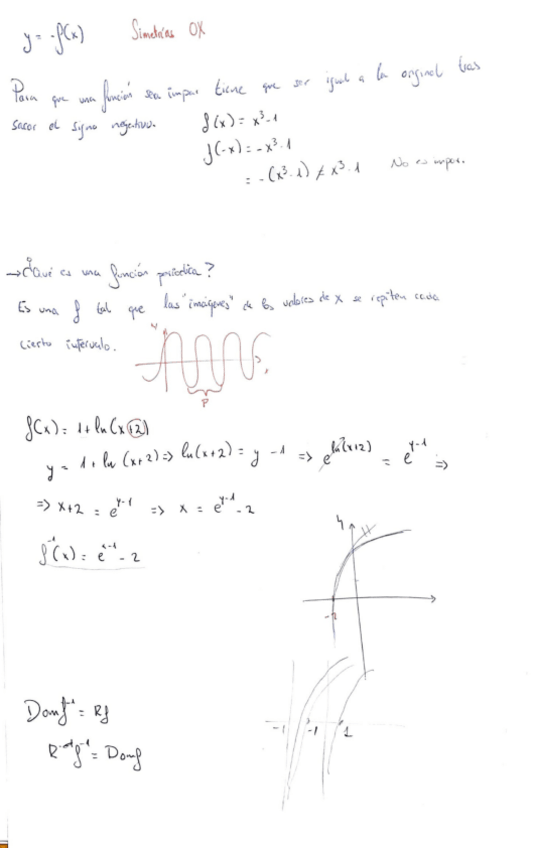 y = -f(x) Simetrías OX
Para que una función sea impar tiene que ser igual a la original tras
sacar el signo negativo. f(x) = x³-1
f(-x) = -x³-1
= -(x³-1) ≠ x³-1 No es impar.
→ ¿Qué es una función periódica?
Es una f tal que las "imágenes" de los valores de x se repiten cada
cierto intervalo.
y
P
f(x) = 1+ln(x+2)
y = 1+ln(x+2) => ln(x+2) = y-1 => e^ln(x+2) = e^y-1 =>
=> x+2 = e^y-1 => x = e^y-1 - 2
f⁻¹(x) = e^x-1 - 2
-2
Dom f⁻¹ = Rf
R f⁻¹ = Dom f
-1 -1 1